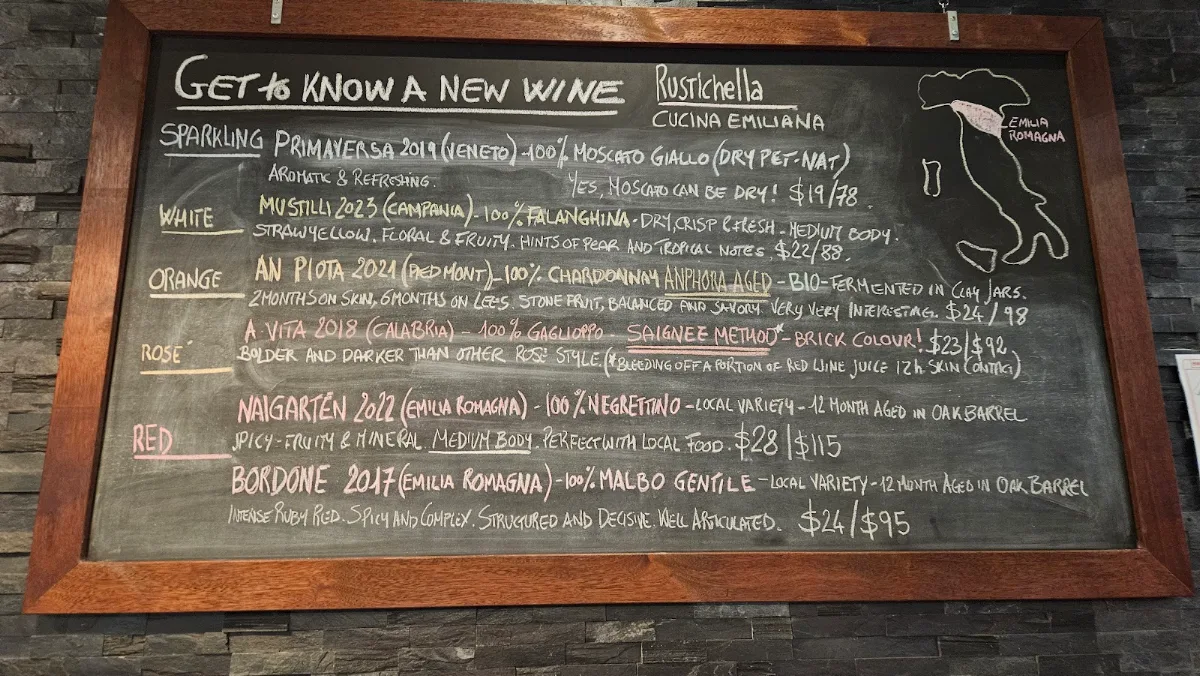 GET to KNOW A NEW WINE
Rustichella
CUCINA EMILIANA
EMILIA
ROMAGNA
SPARKLING PRIMAVERSA 2019 (VENETO) - 100% MOSCATO GIALLO (DRY PET-NAT)
AROMATIC & REFRESHING. YES, MOSCATO CAN BE DRY! $19/78.
WHITE MUSTILLI 2023 (CAMPANIA) - 100% FALANGHINA - DRY, CRISP & FRESH - MEDIUM BODY.
STRAWYELLOW. FLORAL & FRUITY. HINTS OF PEAR AND TROPICAL NOTES. $22/88.
ORANGE AN PIOTA 2021 (PIEDMONT) - 100% CHARDONNAY ANPHORA AGED - BIO - FERMENTED IN CLAY JARS.
2 MONTHS ON SKIN, 6 MONTHS ON LEES. STONE FRUIT, BALANCED AND SAVORY. VERY VERY INTERESTING. $24/98
ROSÉ A VITA 2018 (CALABRIA) - 100% GAGLIOPPO SAIGNEE METHOD* - BRICK COLOUR! $23/$92
BOLDER AND DARKER THAN OTHER ROSÉ STYLE. (*BLEEDING OFF A PORTION OF RED WINE JUICE 12h SKIN CONTACT)
RED NAIGARTÉN 2022 (EMILIA ROMAGNA) - 100% NEGRETTINO - LOCAL VARIETY - 12 MONTH AGED IN OAK BARREL
SPICY - FRUITY & MINERAL. MEDIUM BODY. PERFECT WITH LOCAL FOOD. $28/$115
BORDONE 2017 (EMILIA ROMAGNA) - 100% MALBO GENTILE - LOCAL VARIETY - 12 MONTH AGED IN OAK BARREL
INTENSE RUBY RED. SPICY AND COMPLEX. STRUCTURED AND DECISIVE. WELL ARTICULATED. $24/$95